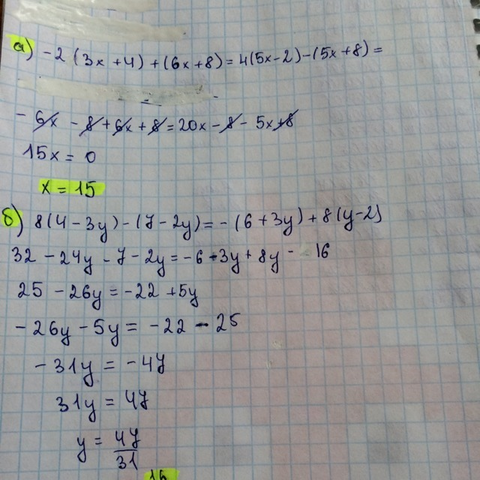 а) -2 (3x + 4) + (6x + 8) = 4(5x - 2) - (5x + 8) =
- 6x - 8 + 6x + 8 = 20x - 8 - 5x + 8
15x = 0
x = 15
б) 8(4 - 3y) - (7 - 2y) = - (6 + 3y) + 8(y - 2)
32 - 24y - 7 - 2y = -6 - 3y + 8y - 16
25 - 26y = -22 + 5y
- 26y - 5y = -22 - 25
- 31y = -47
31y = 47
y = 47/31